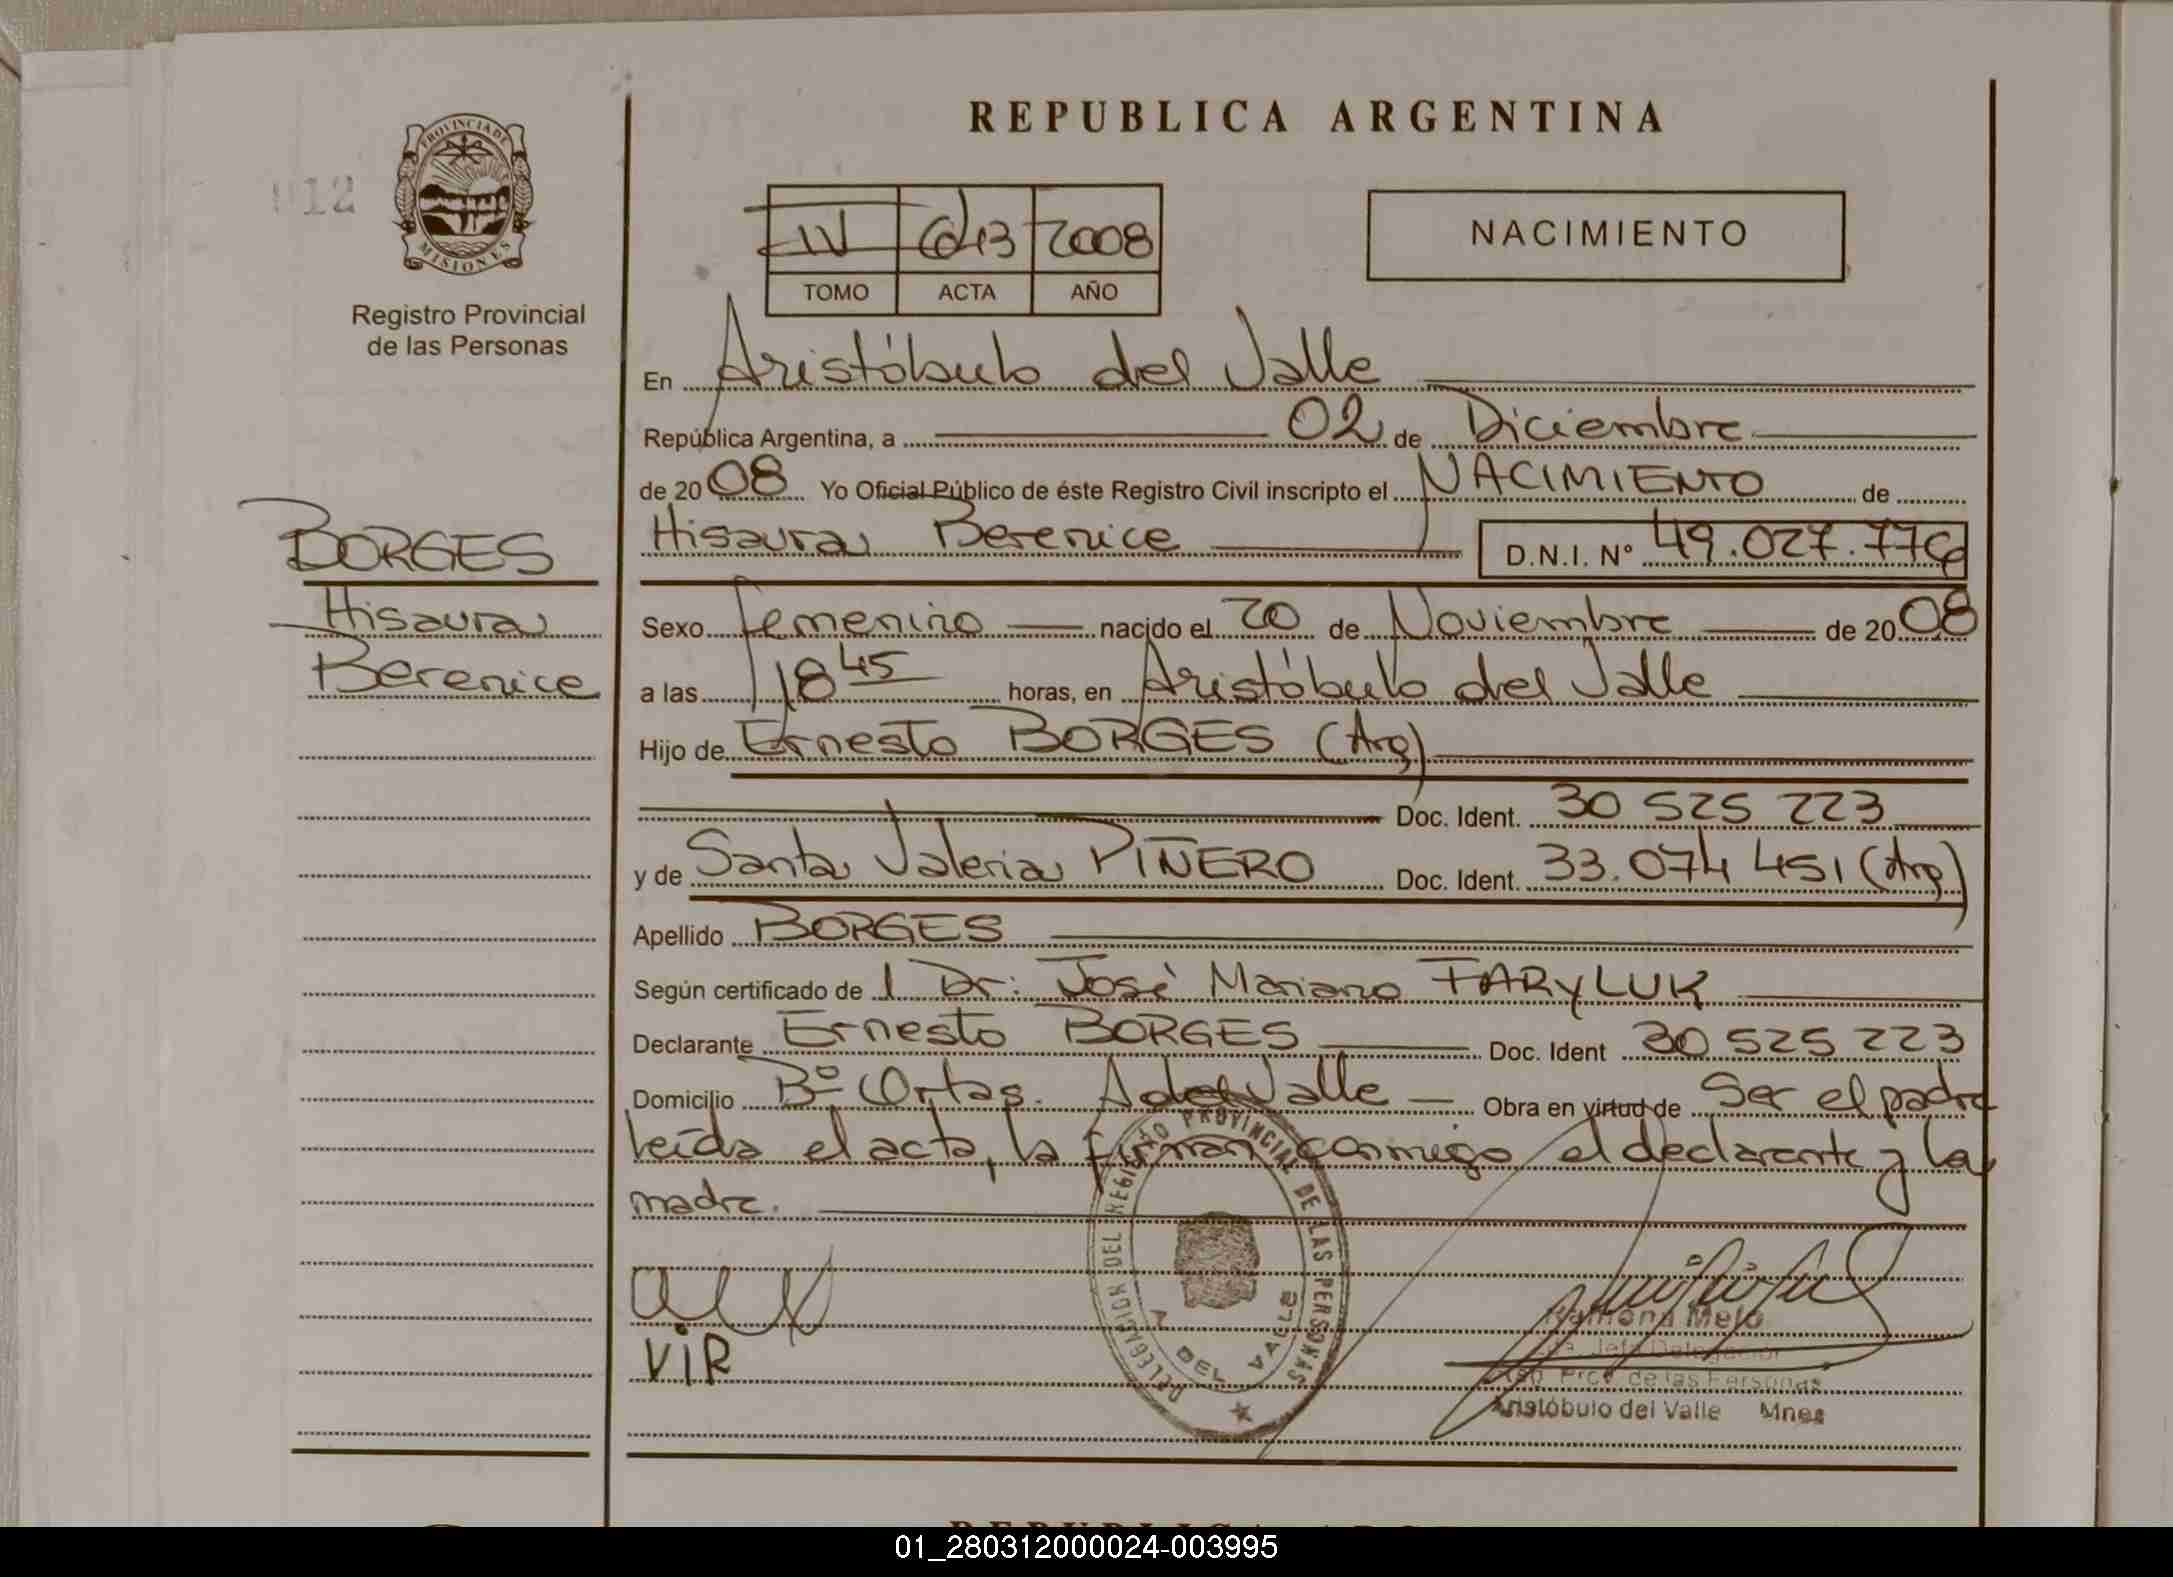 REPUBLICA ARGENTINA
012
PROVINCIA DE MISIONES
Registro Provincial
de las Personas
IV 643 2008
TOMO ACTA AÑO
NACIMIENTO
En Aristóbulo del Valle
República Argentina, a 02 de Diciembre
de 2008 Yo Oficial Público de éste Registro Civil inscripto el NACIMIENTO de
Hisaura Berenice D.N.I. Nº 49.027.776
BORGES
Hisaura
Berenice
Sexo Femenino nacido el 20 de Noviembre de 2008
a las 18 45 horas, en Aristóbulo del Valle
Hijo de Ernesto BORGES (Arg)
Doc. Ident. 30 525 223
y de Santa Valeria PIÑERO Doc. Ident. 33.074 451 (Arg)
Apellido BORGES
Según certificado de l Dr: José Mariano FARYLUK
Declarante Ernesto BORGES Doc. Ident 30 525 223
Domicilio Bº Ortas. A del Valle Obra en virtud de Ser el padre
leída el acta, la firman conmigo el declarante y la
madre.
DELEGACION DEL REGISTRO PROVINCIAL DE LAS PERSONAS
A DEL VALLE
ViR
Ramona Melo
Jefa Delegación
Prov de las Personas
Aristóbulo del Valle Mnes
01_280312000024-003995